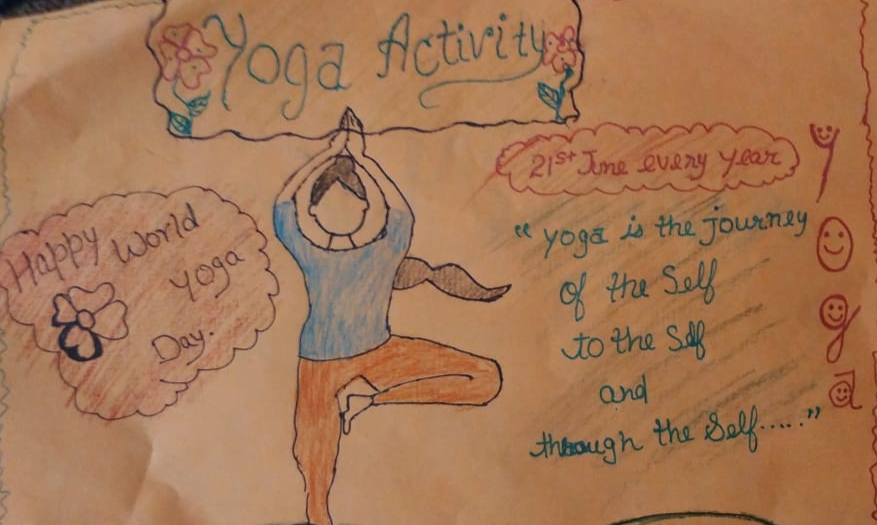 Yoga Activity
21st June every year
Happy World
Yoga
Day.
"yoga is the journey
of the Self
to the Self
and
through the Self....."
y
o
g
a